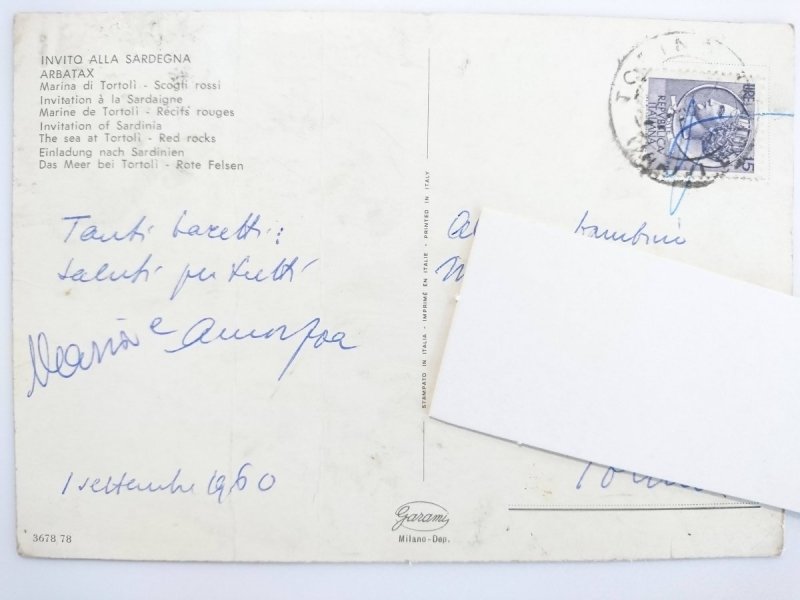 INVITO ALLA SARDEGNA
ARBATAX
Marina di Tortolì - Scogli rossi
Invitation à la Sardaigne
Marine de Tortolì - Récifs rouges
Invitation of Sardinia
The sea at Tortolì - Red rocks
Einladung nach Sardinien
Das Meer bei Tortolì - Rote Felsen
Tanti bacetti:
saluti per tutti
Maria e
1 settembre 1960
3678 78
STAMPATO IN ITALIA - IMPRIMÉ EN ITALIE - PRINTED IN ITALY
REPUBBLICA
ITALIANA
LIRE 15
bambini
Garami
Milano-Dep.